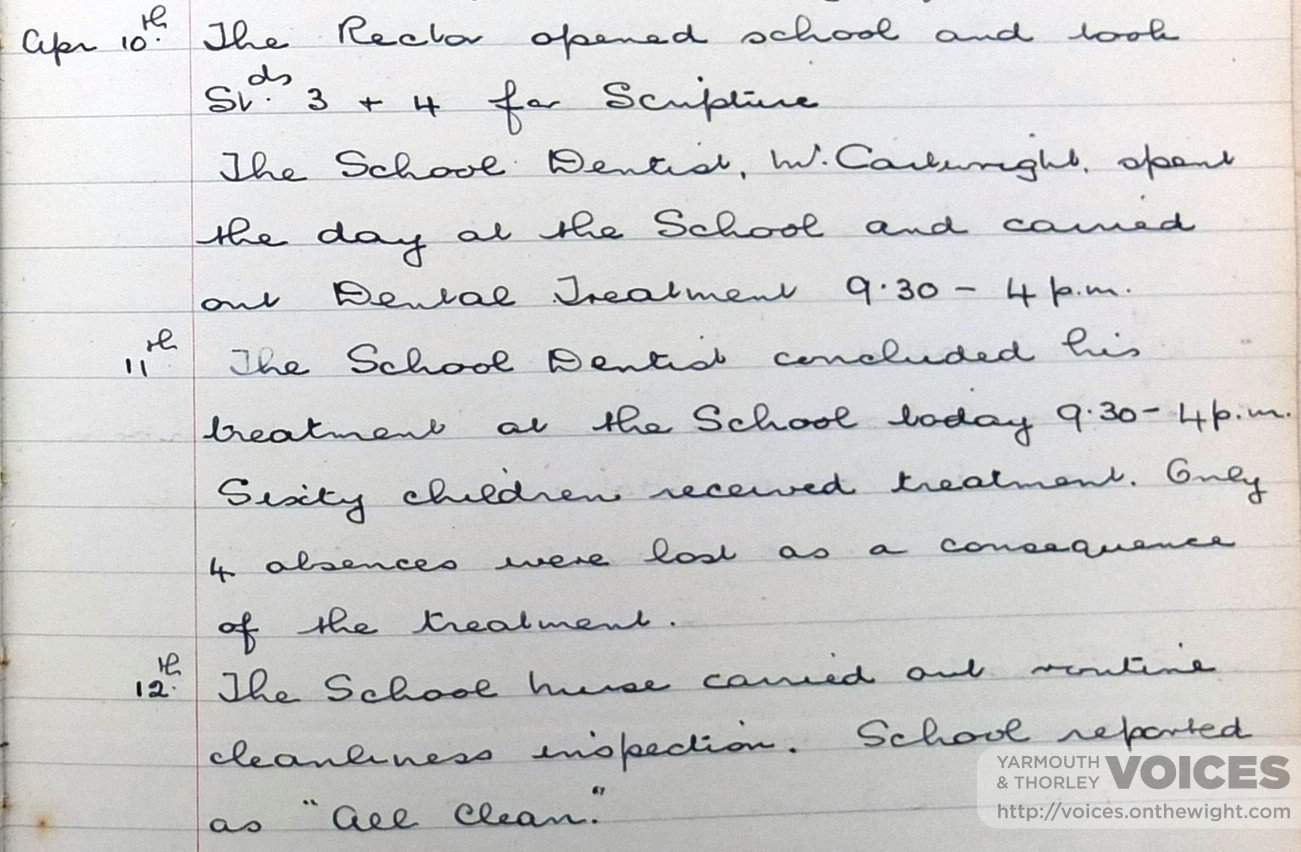 Apr 10th. The Rector opened school and took
Stds. 3 + 4 for Scripture
The School Dentist, Mr. Cartwright, spent
the day at the School and carried
out Dental Treatment 9.30 - 4 p.m.
11th. The School Dentist concluded his
treatment at the School today 9.30 - 4 p.m.
Sixity children received treatment. Only
4 absences were lost as a consequence
of the treatment.
12th. The School Nurse carried out routine
cleanliness inspection. School reported
as "All Clean."
YARMOUTH & THORLEY VOICES
http://voices.onthewight.com